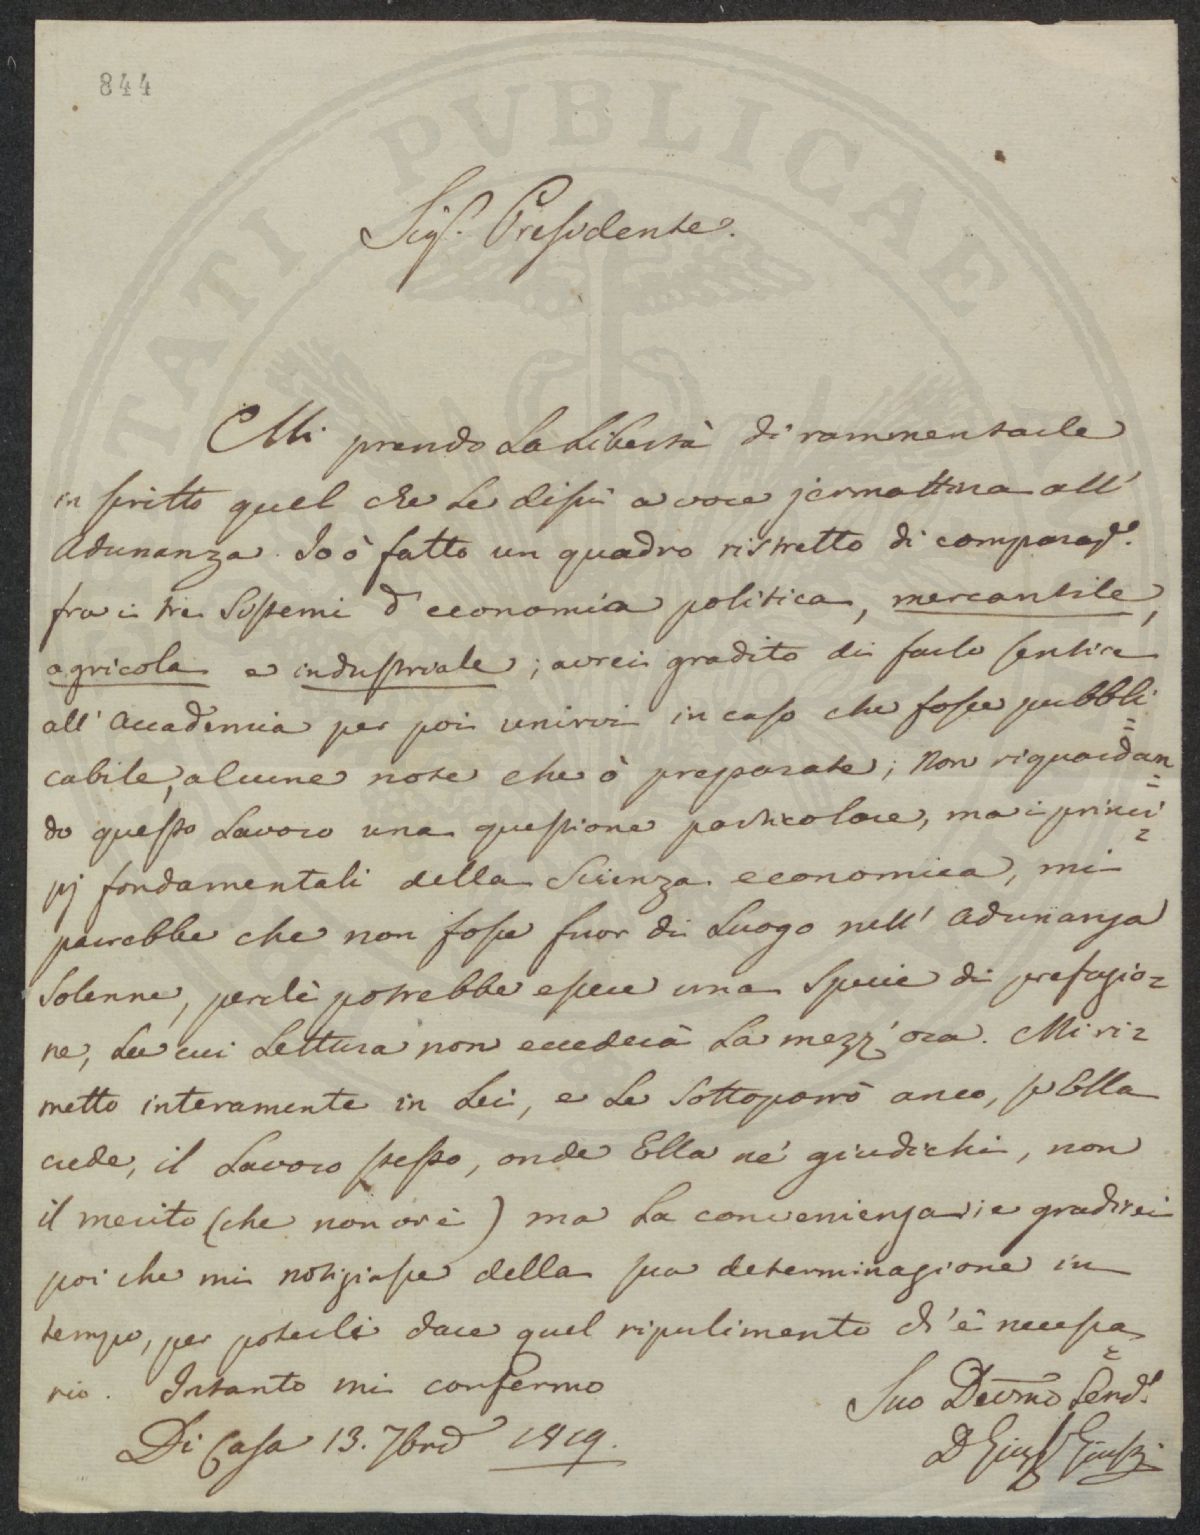 844
Sigr. Presidente.
Mi prendo La Libertà di rammentarle
in scritto quel che Le dissi a voce jermattina all'
Adunanza. Io ò fatto un quadro ristretto di comparaze.
fra i tre Sistemi d'economia politica, mercantile,
agricola e industriale; avrei gradito di farlo sentire
all'Accademia per poi unirvi in caso che fosse pubbli=
cabile, alcune note che ò preparate; Non riguardan=
do questo Lavoro una questione particolare, ma i princi=
pj fondamentali della Scienza economica, mi
parrebbe che non fosse fuor di Luogo nell'Adunanza
Solenne, perchè potrebbe essere una Specie di prefazio=
ne, La cui Lettura non eccederà La mezz'ora. Mi ri=
metto interamente in Lei, e Le Sottoporrò anco, s'Ella
crede, il Lavoro stesso, onde Ella ne giudichi, non
il merito (che non vi è) ma La convenienza; e gradirei
poi che mi notiziasse della sua determinazione in
tempo, per poterli dare quel ripulimento ch'è necessa=
rio. Intanto mi confermo
Suo Devmo Serve.
Di Casa 13. 7bre 1819.
D Giuse Giusti